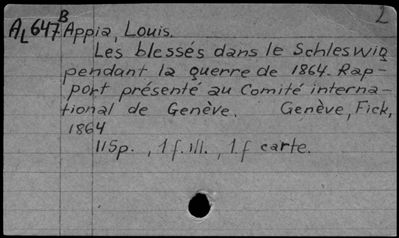 2
AL647B Appia, Louis.
Les blessés dans le Schleswig
pendant la guerre de 1864. Rap-
port présenté au Comité interna-
tional de Genève. Genève, Fick,
1864
115p., 1 f. ill., 1 f carte.